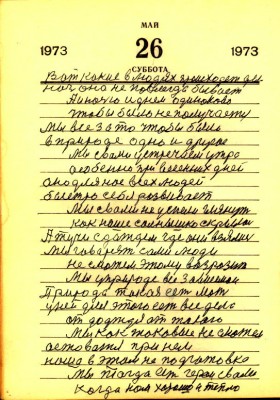 МАЙ
1973 26 1973
СУББОТА
Вот какие в людях
она не повсегда бывает
А ночью и днем одинаково
чтобы было не получается
Мы все за то чтобы было
в природе одно и другое
Мы с вами встречаем утро
особенно при весенних дней
оно для нас всех людей
быстро себя развивает
Мы с вами не успели глянуть
как наше солнышко скрылось
А тучи с дождем где они взялись
Мы говорят сами люди
не сможем этому возразить
Мы у природе все зависим
Природа такая есть мать
у ней для этого есть все дело
от дождя от такого
Мы как таковые не сможем
оставаться при нем
наша в этом не подготовка
Мы тогда есть герои с вами
когда нам хорошо и тепло